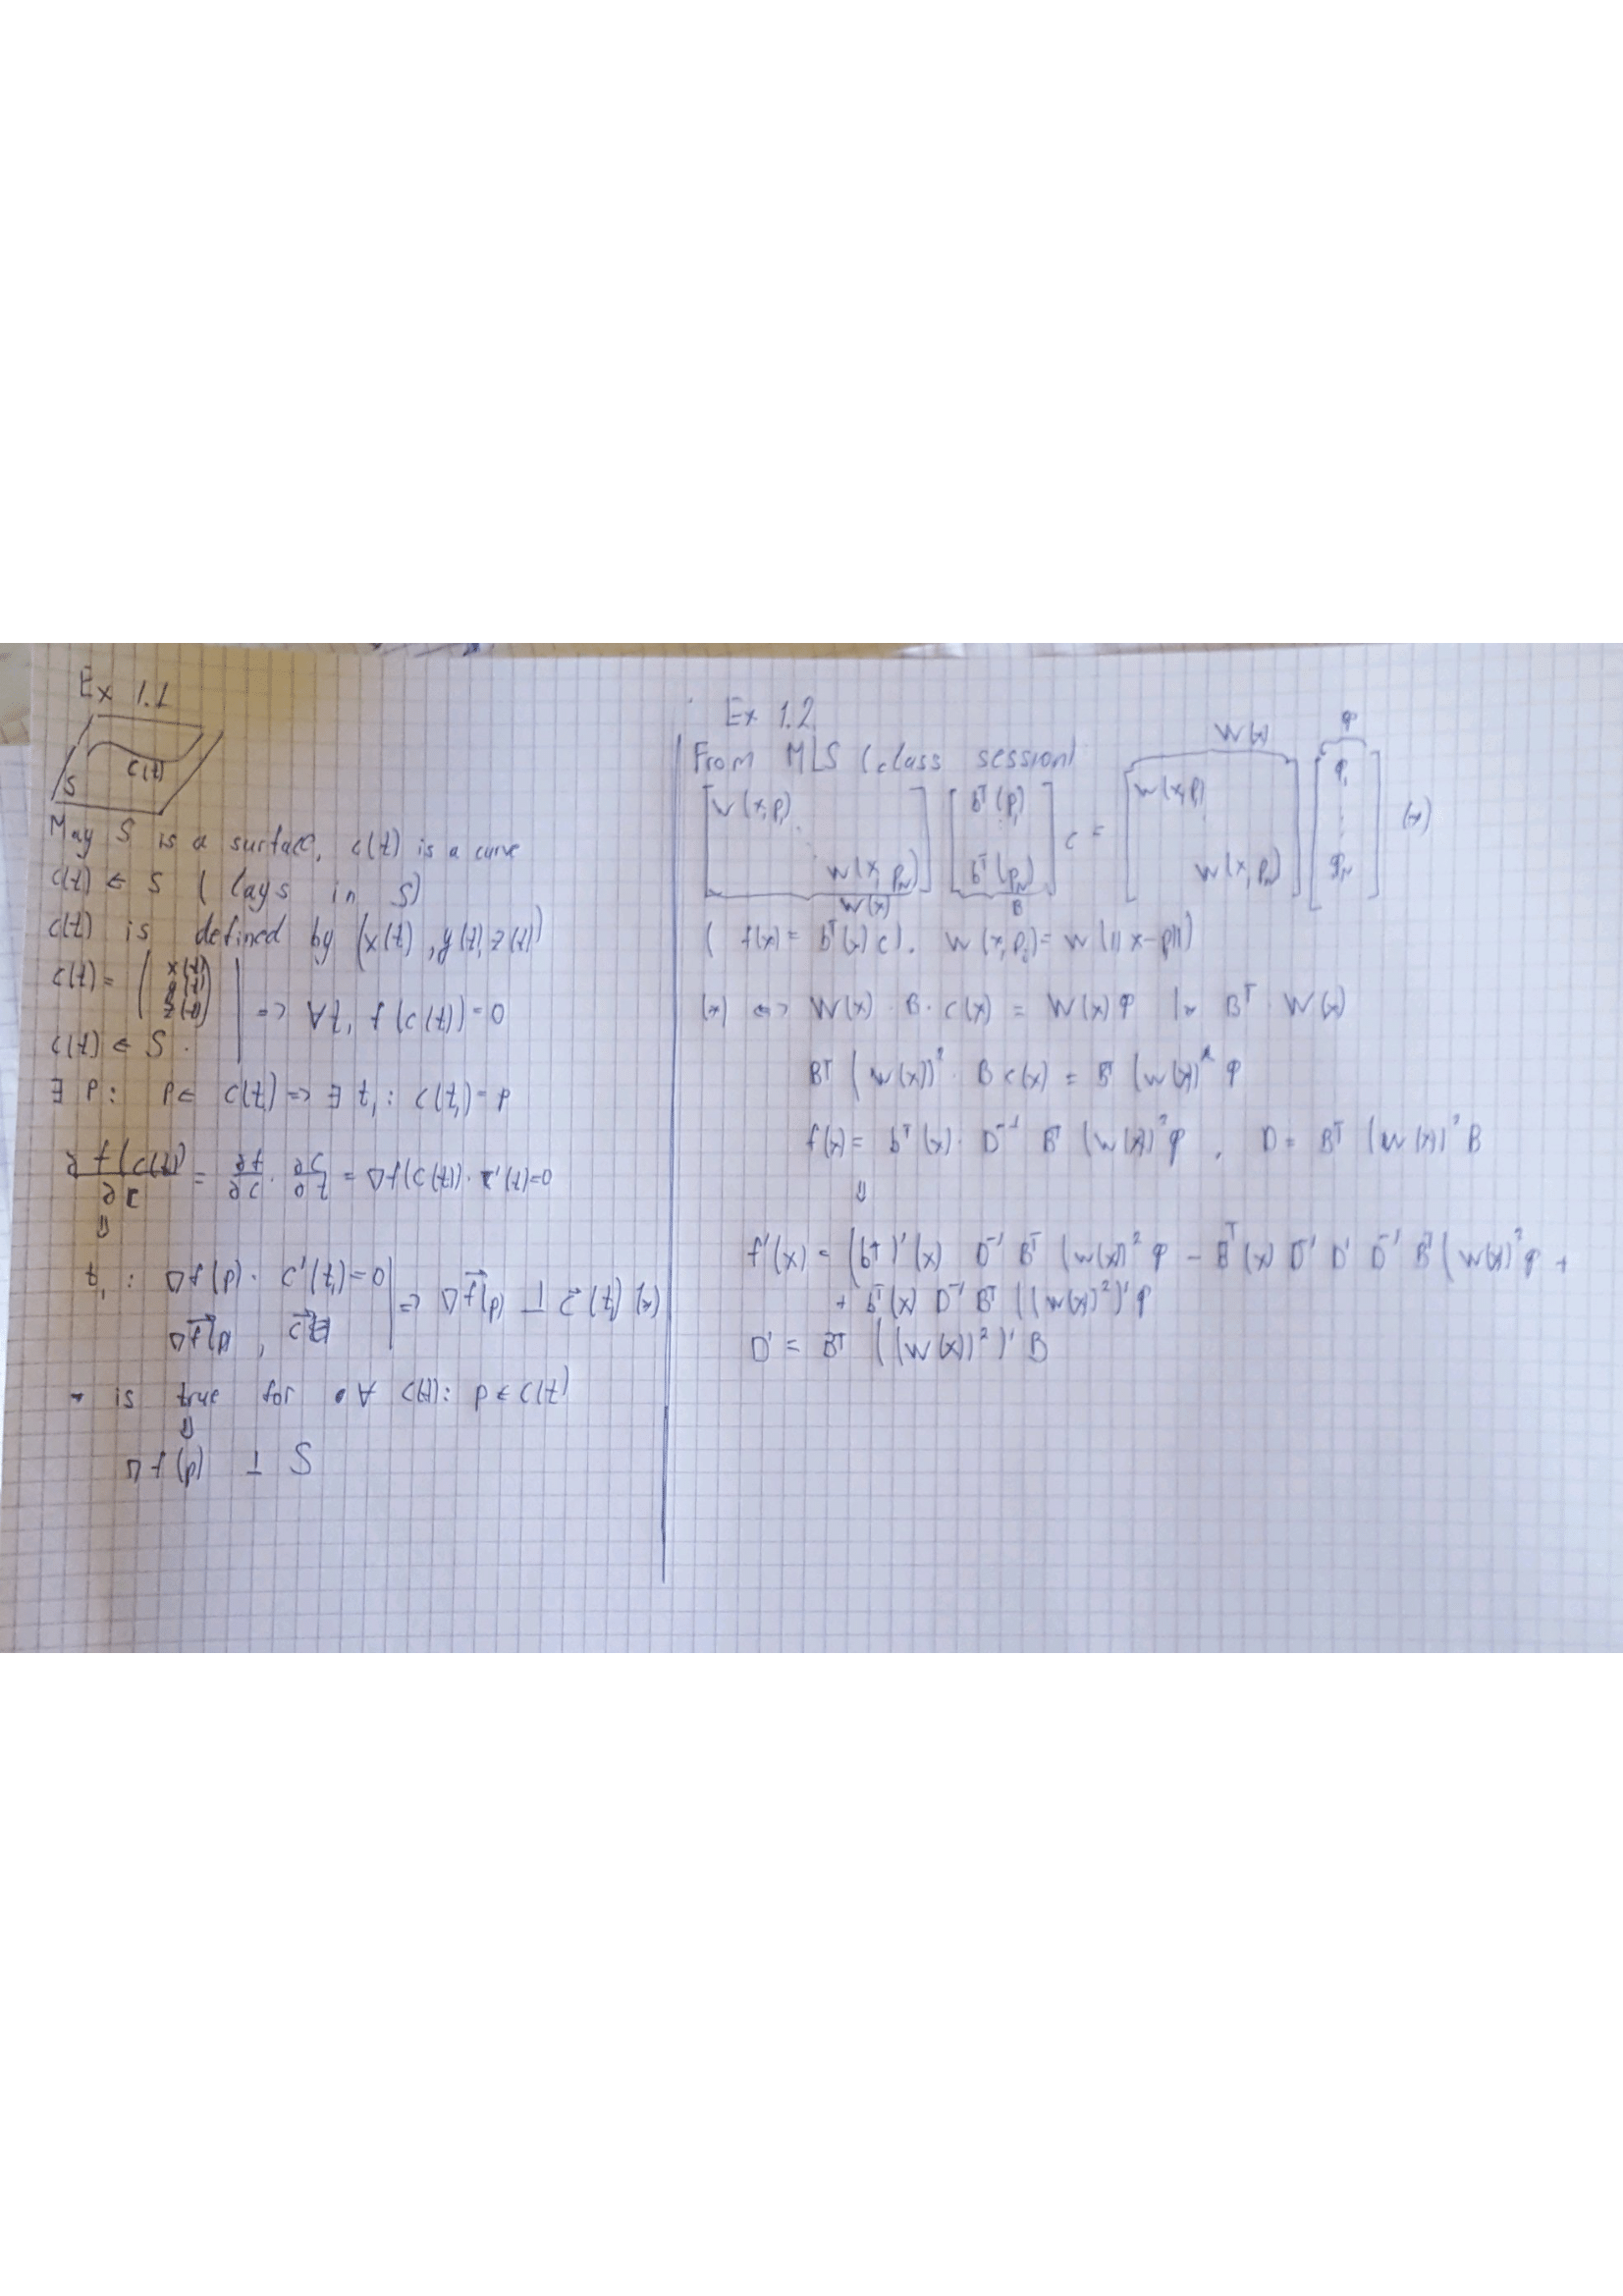 Ex 1.1
S c(t)
May S is a surface, c(t) is a curve
c(t) ∈ S ( lays in S)
c(t) is defined by (x(t), y(t), z(t))
c(t) = ( x(t) y(t) z(t) )
=> ∀t, f(c(t))=0
c(t) ∈ S .
∃ p : p ∈ c(t) => ∃ t₁ : c(t₁) = p
∂f(c(t))/∂t = ∂f/∂c · ∂c/∂t = ∇f(c(t)) · c'(t)=0
⇓
t₁ : ∇f(p) · c'(t₁)=0
=> ∇f(p) ⊥ c(t) (*)
∇f(p) ,
* is true for ∀ c(t): p ∈ c(t)
⇓
∇f(p) ⊥ S
Ex 1.2
From MLS (class session)
W(x) φ
[w(x,p₁) ... w(x,p_N)] [bᵀ(p₁) ... bᵀ(p_N)] c = [w(x,p₁) ... w(x,p_N)] [φ₁ ... φ_N] (*)
W(x) B
( f(x) = bᵀ(x) c). w(x,pᵢ) = w(||x-p||)
(*) <=> W(x) · B · c(x) = W(x) φ |× Bᵀ · W(x)
Bᵀ (W(x))² · B c(x) = Bᵀ (W(x))² φ
f(x) = bᵀ(x) · D⁻¹ Bᵀ (W(x))² φ , D = Bᵀ (W(x))² B
⇓
f'(x) = (bᵀ)'(x) D⁻¹ Bᵀ (W(x))² φ - Bᵀ(x) D⁻¹ D' D⁻¹ Bᵀ (W(x))² φ +
+ bᵀ(x) D⁻¹ Bᵀ ((W(x))²)' φ
D' = Bᵀ ((W(x))²)' B